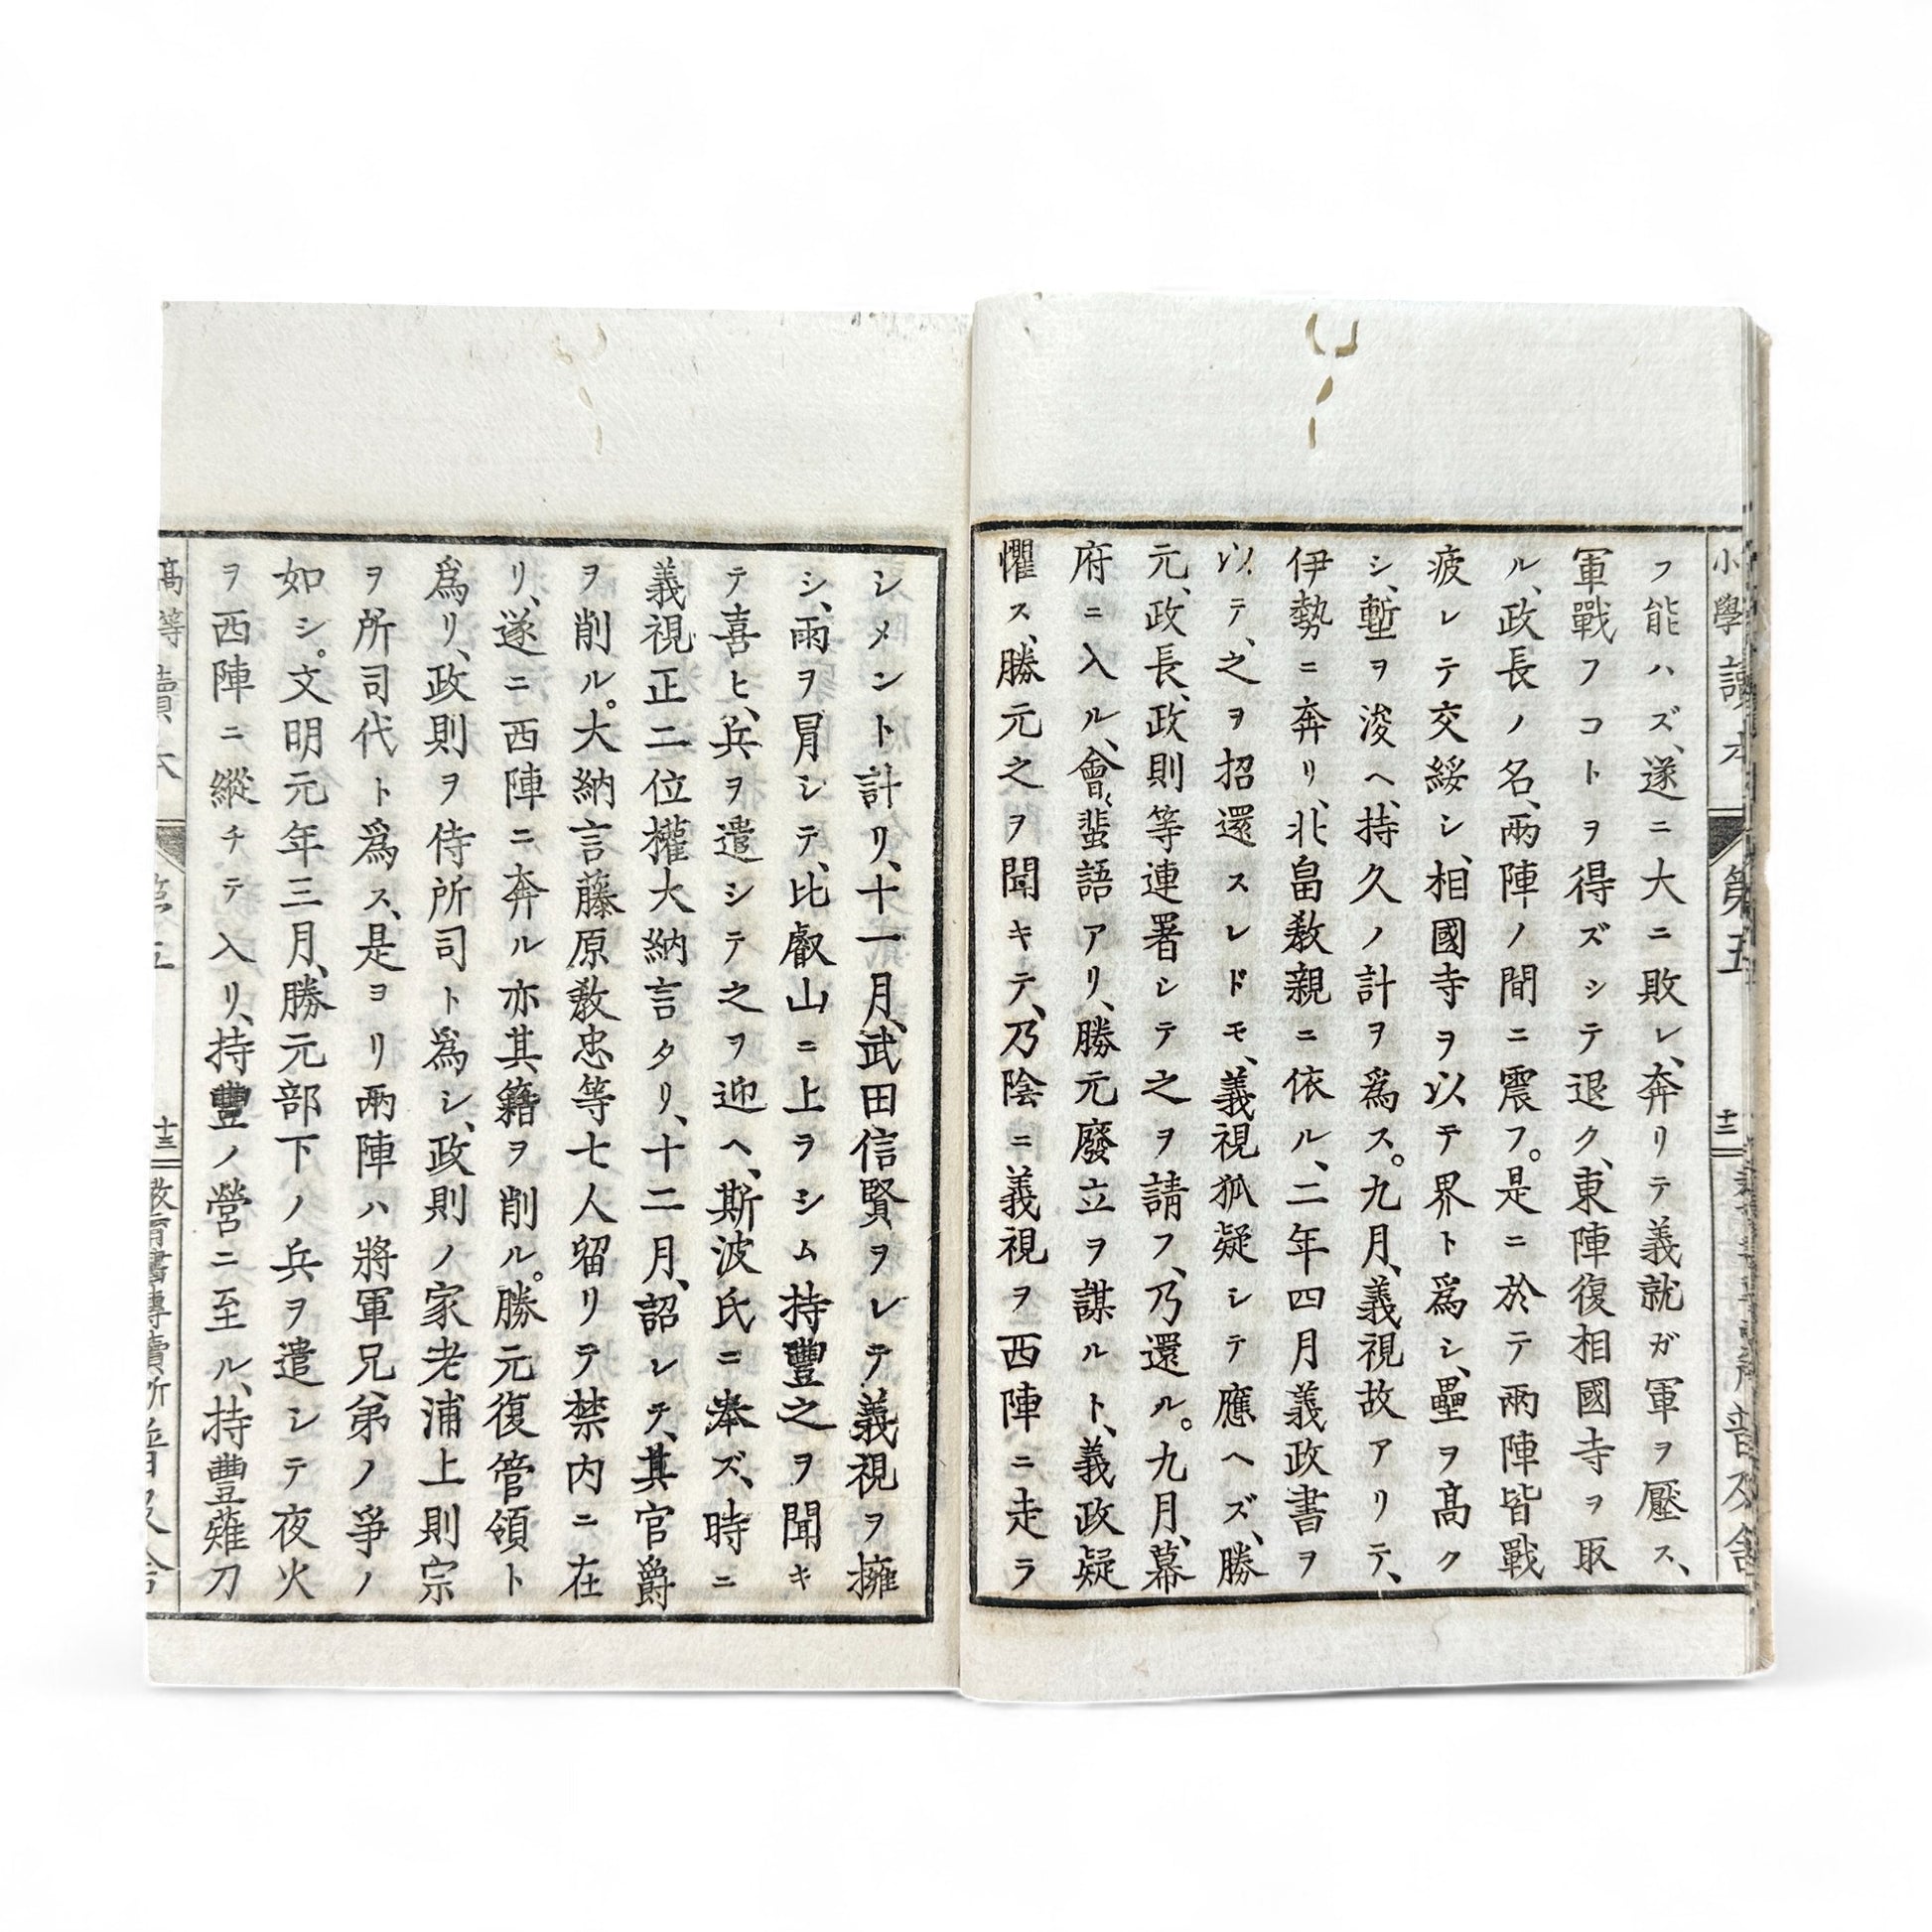 フ能ハズ、遂ニ大ニ敗レ、奔リテ義就ガ軍ヲ壓ス、
軍戰フコトヲ得ズシテ退ク、東陣復相國寺ヲ取
ル、政長ノ名、兩陣ノ間ニ震フ。是ニ於テ兩陣皆戰
疲レテ交綏シ、相國寺ヲ以テ界ト爲シ、壘ヲ高ク
シ、塹ヲ浚ヘ、持久ノ計ヲ爲ス。九月、義視故アリテ、
伊勢ニ奔リ、北畠敎親ニ依ル、二年四月義政書ヲ
以テ、之ヲ招還スレドモ、義視狐疑シテ應ヘズ、勝
元、政長、政則等連署シテ之ヲ請フ、乃還ル。九月、幕
府ニ入ル、會〻蜚語アリ、勝元廢立ヲ謀ルト、義政疑
懼ス、勝元之ヲ聞キテ、乃陰ニ義視ヲ西陣ニ走ラ
シメント計リ、十一月、武田信賢ヲシテ義視ヲ擁
シ、雨ヲ冐シテ、比叡山ニ上ラシム持豐之ヲ聞キ
テ喜ヒ、兵ヲ遣シテ之ヲ迎ヘ、斯波氏ニ奉ズ、時ニ
義視正二位權大納言タリ、十二月、詔シテ、其官爵
ヲ削ル。大納言藤原敎忠等七人留リテ禁内ニ在
リ、遂ニ西陣ニ奔ル亦其籍ヲ削ル。勝元復管領ト
爲リ、政則ヲ侍所司ト爲シ、政則ノ家老浦上則宗
ヲ所司代ト爲ス、是ヨリ兩陣ハ將軍兄弟ノ爭ノ
如シ。文明元年三月、勝元部下ノ兵ヲ遣シテ夜火
ヲ西陣ニ縱チテ入リ、持豐ノ營ニ至ル、持豐薙刀
小學讀本
第五
十三
高等讀本
第五
十三
教育書專賣所普及舍